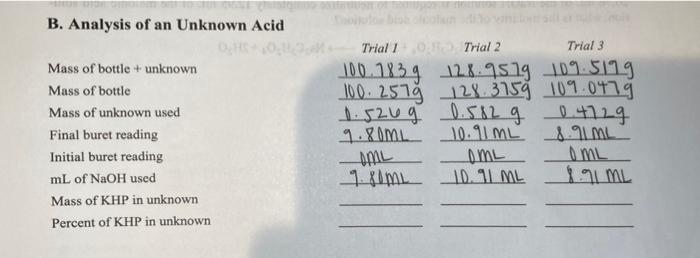 B. Analysis of an Unknown Acid
Trial 1 Trial 2 Trial 3
Mass of bottle + unknown 100.783g 128.957g 109.519g
Mass of bottle 100.257g 128.375g 109.047g
Mass of unknown used 0.526g 0.582g 0.472g
Final buret reading 9.80mL 10.91mL 8.91mL
Initial buret reading 0mL 0mL 0mL
mL of NaOH used 9.80mL 10.91mL 8.91mL
Mass of KHP in unknown
Percent of KHP in unknown